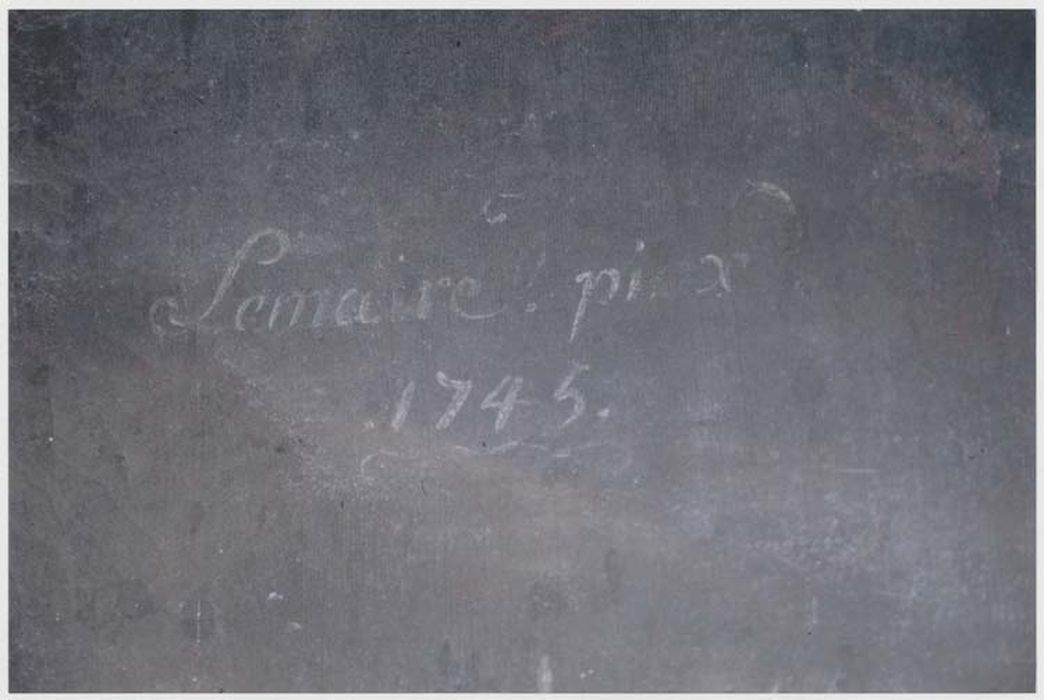 Lemaire. pinx
.1745.